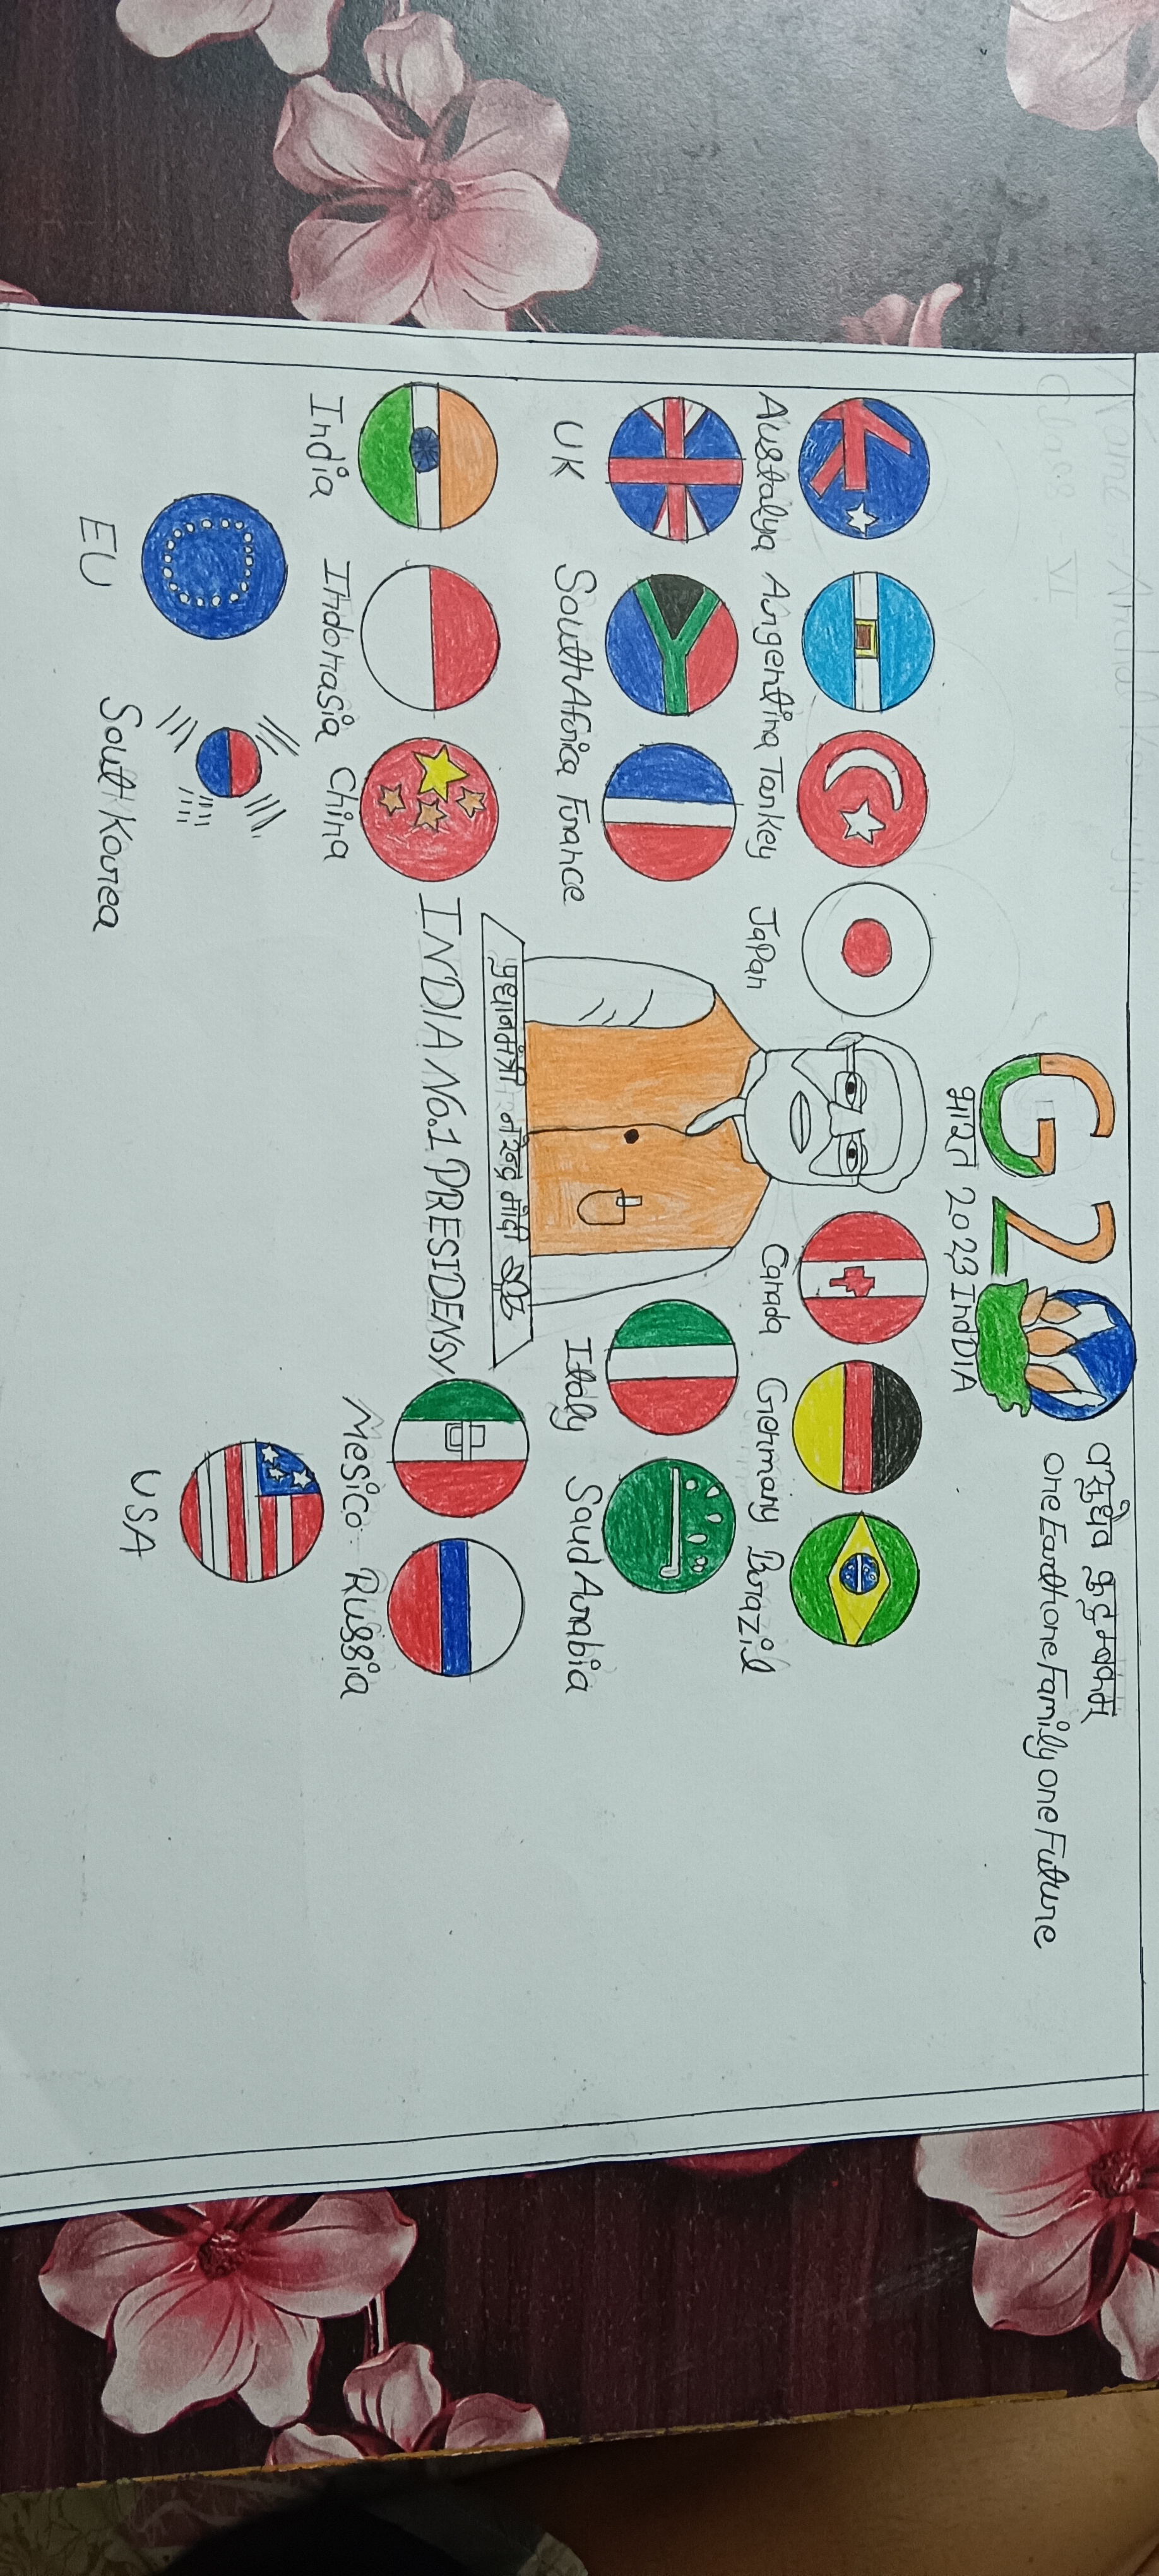 G20
वसुधैव कुटुम्बकम
भारत 2023 IndDIA
one Earth one Family one Future
Austalya Argentina Tankey Japan
Canada Germany Brazil
UK South Africa France
Italy Saud Arabia
प्रधानमंत्री नरेन्द्र मोदी
INDIA No.1 PRESIDENSY
India Indonasia China
Mesico Russia
EU South Korea
USA